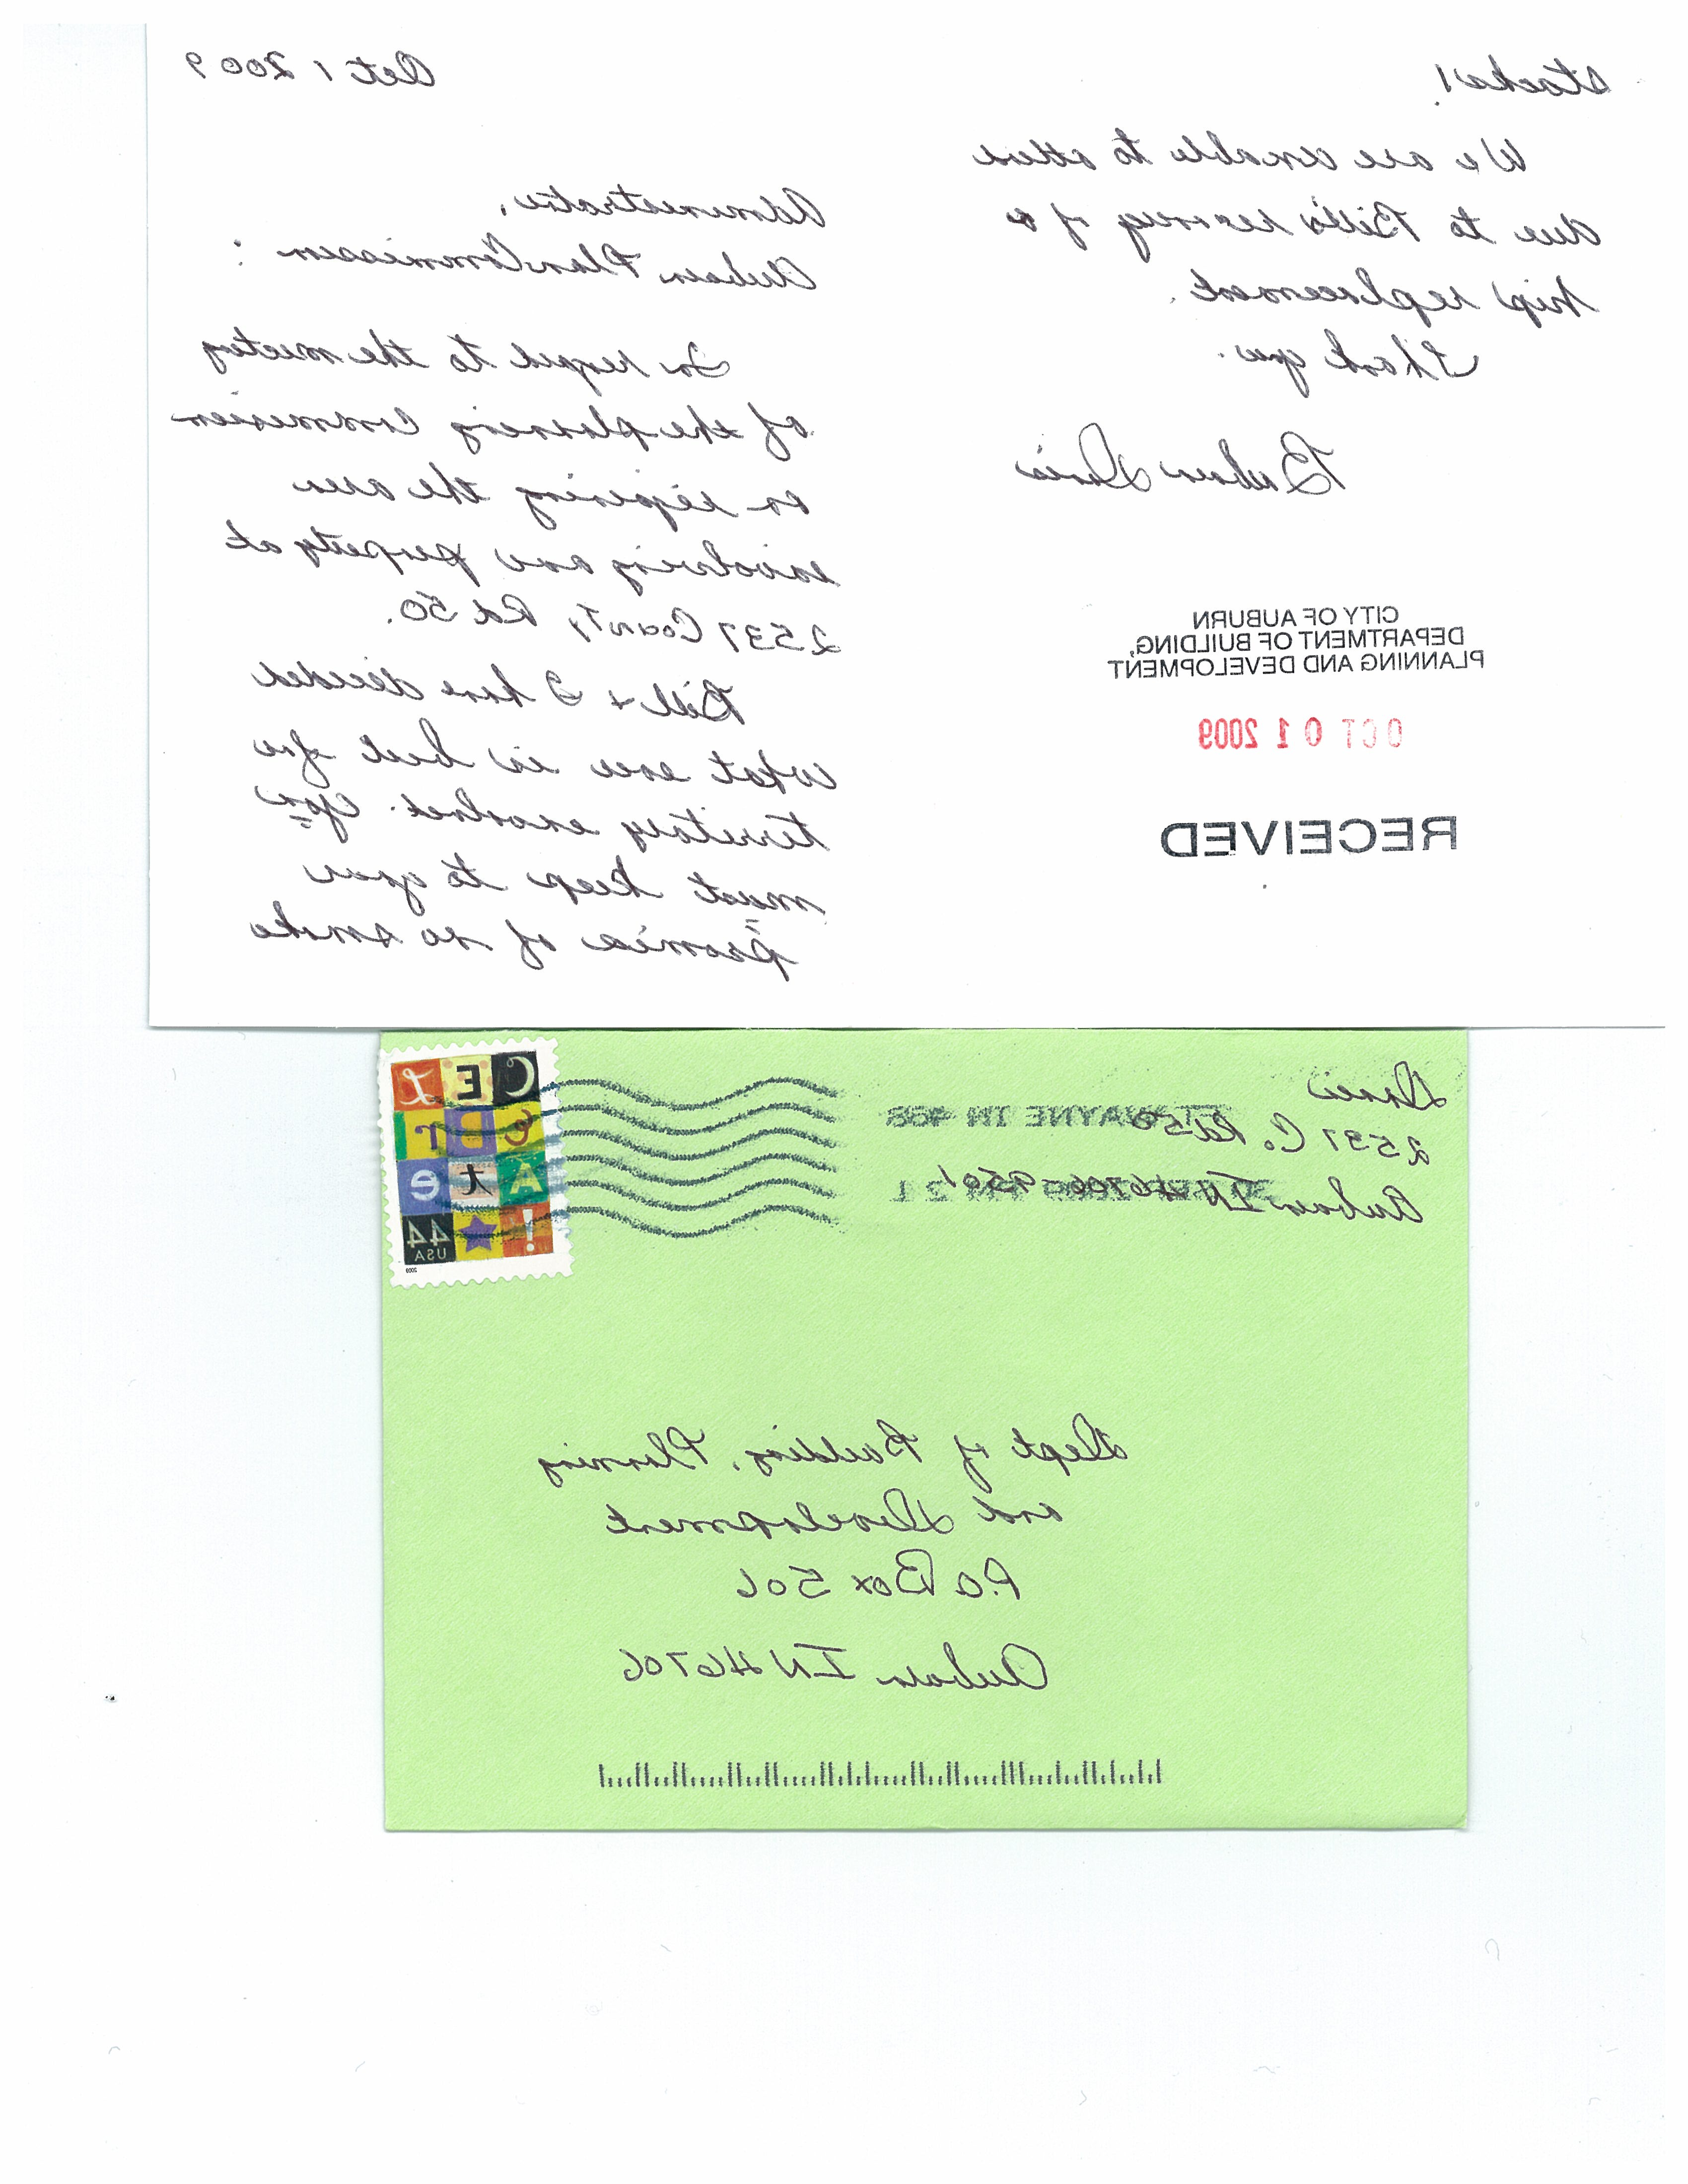 Oct 1 2009
Administrator,
Auburn Plan Commission :
In regard to the meeting
of the planning commission
on rezoning the area
involving our property at
2537 County Rd 50.
Bill & I have decided
what ever is best for
territory involved. You
must keep to your
promise of no smoke
stacks!
We are unable to attend
due to Bill's recovery of a
hip replacement.
Thank you.
Barbara Davis
CITY OF AUBURN
DEPARTMENT OF BUILDING,
PLANNING AND DEVELOPMENT
OCT 01 2009
RECEIVED
Davis
2537 C. Rd 50
Auburn IN 46706-9501
FT WAYNE IN 468
CELebrAte!
44
USA
2009
Dept of Building, Planning
and Development
P.O Box 506
Auburn IN 46706